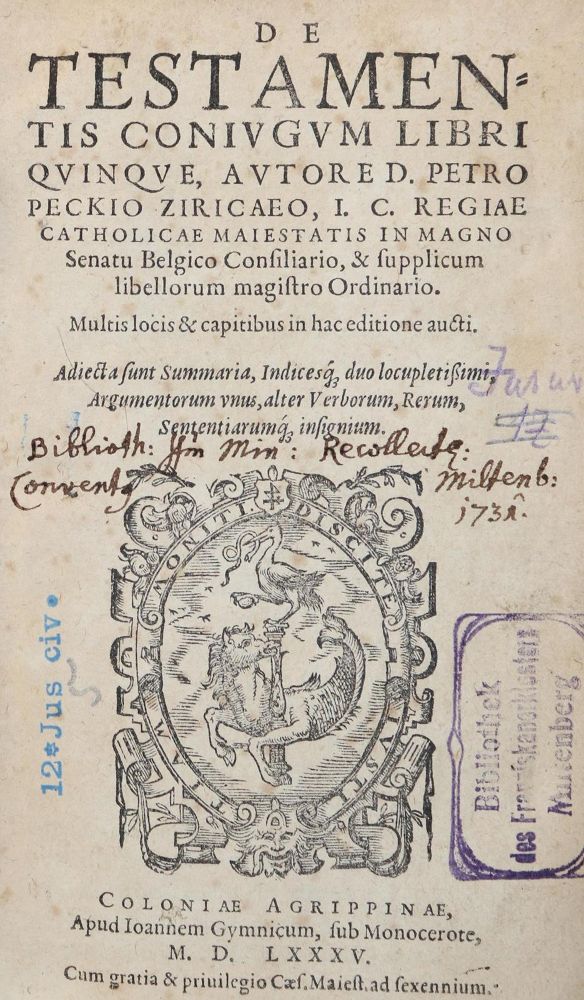 DE
TESTAMEN-
TIS CONIVGVM LIBRI
QVINQVE, AVTORE D. PETRO
PECKIO ZIRICAEO, I. C. REGIAE
CATHOLICAE MAIESTATIS IN MAGNO
Senatu Belgico Conſiliario, & ſupplicum
libellorum magiſtro Ordinario.
Multis locis & capitibus in hac editione aucti.
Adiecta ſunt Summaria, Indicesq́ꝫ duo locupletißimi,
Argumentorum vnus, alter Verborum, Rerum,
Sententiarumq́ꝫ inſignium.
Biblioth: ffm Min: Recollectꝫ:
Conventꝫ Miltenb:
1731.
MONITI DISCITE
IVSTITIAM
12*Jus civ.
Bibliothek
des Franziskanerklosters
Miltenberg
COLONIAE AGRIPPINAE,
Apud Ioannem Gymnicum, ſub Monocerote,
M. D. LXXXV.
Cum gratia & priuilegio Cæſ. Maieſt. ad ſexennium.